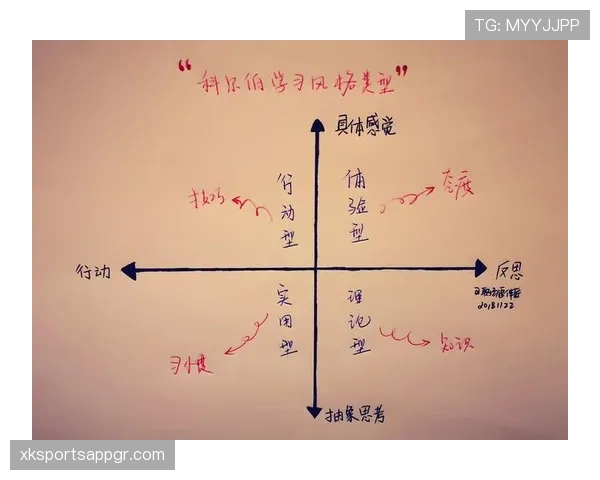 TG: MYYJJPP
“科尔伯学习风格类型”
具体感觉
行动型
体验型
技巧
态度
行动
反思
20181122
实用型
理论型
习惯
知识
抽象思考
xksportsappgr.com